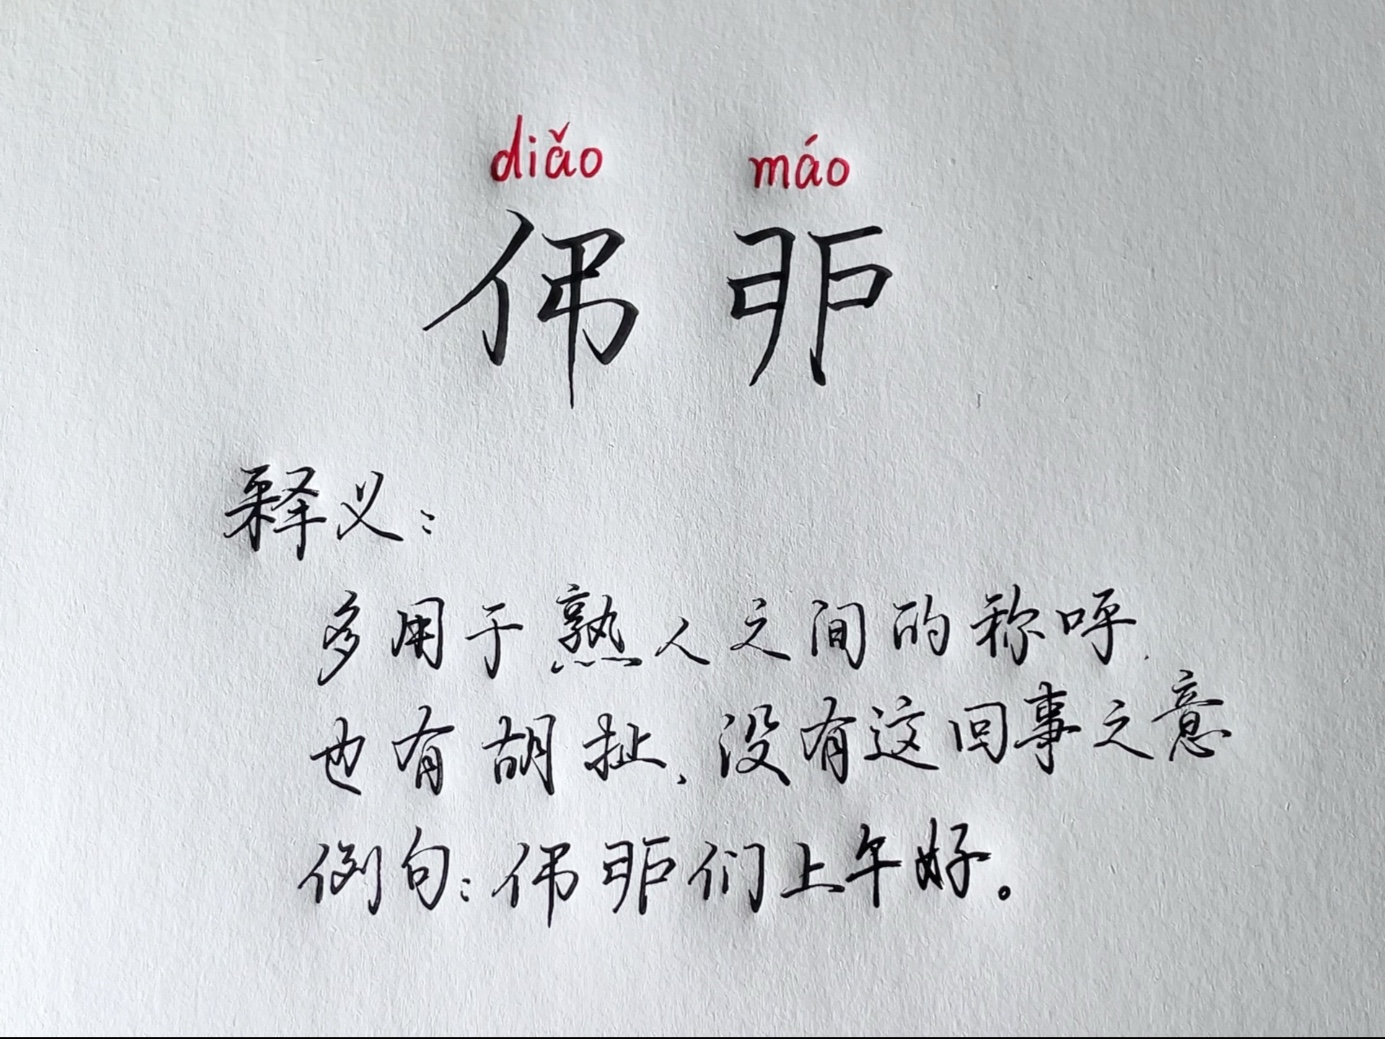 diǎo máo
伄戼
释义：
多用于熟人之间的称呼.
也有胡扯、没有这回事之意
例句：伄戼们上午好。